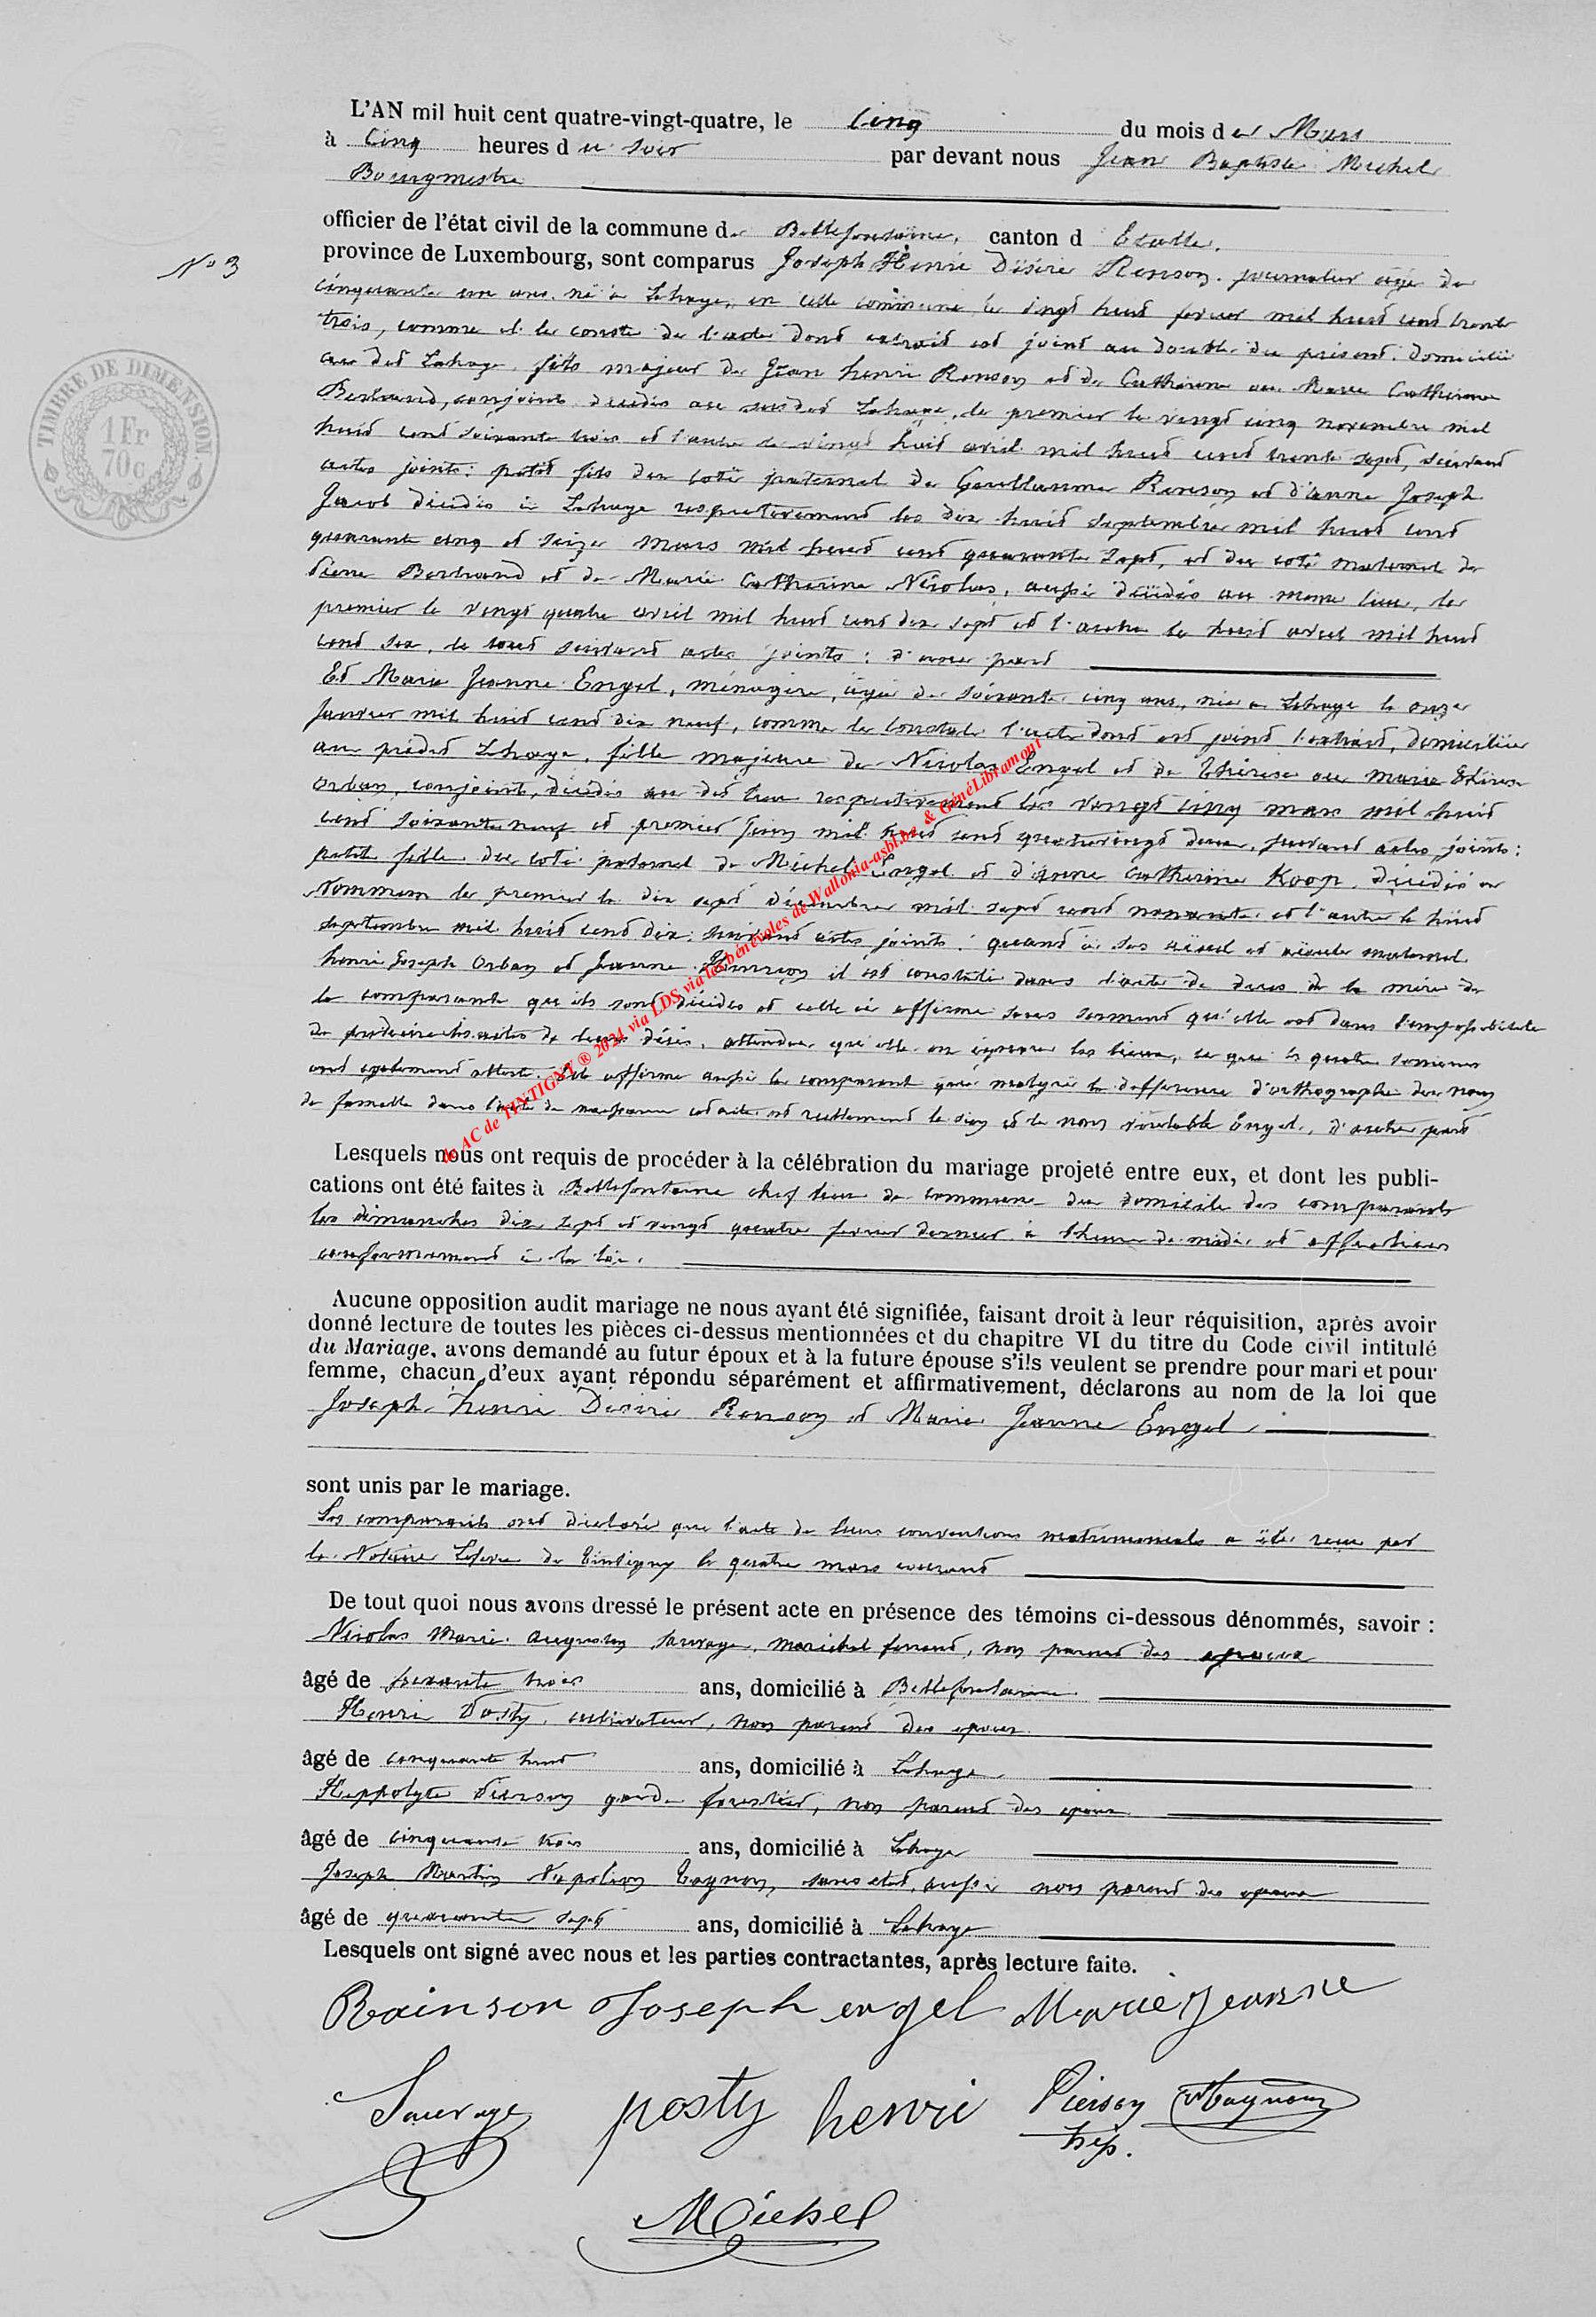 L'AN mil huit cent quatre-vingt-quatre, le cinq du mois de Mars
à cinq heures du soir par devant nous Jean Baptiste Michel
Bourgmestre
officier de l'état civil de la commune de Bellefontaine, canton d Etalle,
N° 3
province de Luxembourg, sont comparus Joseph Henri Désiré Renson, journalier âgé de
cinquante un ans, né à Lahage, en cette commune le vingt huit fevrier mil huit cent trente
trois, comme il le conste de l'acte dont extrait est joint au double du présent, domicilié
au dit Lahage, fils majeur de Jean henri Renson et de Catherine ou Marie Catherine
Bertrand, conjoints décédés au susdit Lahage, le premier le vingt cinq novembre mil
huit cent soixante trois et l'autre le vingt huit avril mil huit cent trente sept, suivant
actes joints; petit fils du coté paternel de Guillaume Renson et d'anne Joseph
Jacob décédés à Lahage respectivement les dix huit septembre mil huit cent
quarante cinq et seize Mars mil huit cent quarante sept, et du coté maternel de
Pierre Bertrand et de Marie Catherine Nicolas, aussi décédés au même lieu, le
premier le vingt quatre avril mil huit cent dix sept et l'autre le huit avril mil huit
cent six, le tout suivant actes joints; d'une part
Et Marie Jeanne Engel, ménagère, âgée de soixante cinq ans, née à Lahage le onze
Janvier mil huit cent dix neuf, comme le constate l'acte dont est joint l'extrait, domiciliée
au prédit Lahage, fille majeure de Nicolas Engel et de Thérèse ou marie Thérèse
Orban, conjoints, décédés au dit lieu respectivement les vingt cinq mars mil huit
cent soixante neuf et premier Juin mil huit cent quatrevingt deux, suivant actes joints;
petite fille du coté paternel de Michel Engel et d'anne Catherine Koop, décédés à
Nommern le premier le dix sept décembre mil sept cent nonante et l'autre le huit
septembre mil huit cent dix; suivant actes joints; quant à ses aïeul et aïeule maternel
henri Joseph Orban et Jeanne il est constaté dans l'acte de décès de la mère de
la comparante qu'ils sont décédés et celle ci affirme sous serment qu'elle est dans l'impossibilité
de produire les actes de leurs décès, attendu qu'elle en ignore les lieux, ce que les quatre temoins
ont egalement attesté. Elle affirme aussi la comparant que malgré la difference d'orthographe du nom
de famille dans l'acte de naissance cet acte est reellement le sien et le nom véritable Engel, d'autre part
de AC de TINTIGNY ® 2024 via LDS via les bénévoles de Wallonia-asbl.be & GénéLibramont
TIMBRE DE DIMENSION
1 Fr
70 c
Lesquels nous ont requis de procéder à la célébration du mariage projeté entre eux, et dont les publi-
cations ont été faites à Bellefontaine chef lieu de commune du domicile des comparants
les dimanches dix sept et vingt quatre fevrier dernier à l'heure de midi et affichées
conformement à la loi.
Aucune opposition audit mariage ne nous ayant été signifiée, faisant droit à leur réquisition, après avoir
donné lecture de toutes les pièces ci-dessus mentionnées et du chapitre VI du titre du Code civil intitulé
du Mariage, avons demandé au futur époux et à la future épouse s'ils veulent se prendre pour mari et pour
femme, chacun d'eux ayant répondu séparément et affirmativement, déclarons au nom de la loi que
Joseph henri Désiré Renson et Marie Jeanne Engel,
sont unis par le mariage.
Les comparants ont déclaré que l'acte de leurs conventions matrimoniales a été recu par
le Notaire Lefevre de Tintigny le quatre mars courant
De tout quoi nous avons dressé le présent acte en présence des témoins ci-dessous dénommés, savoir :
Nicolas Marie Augustin Sauvage, maréchal ferrant, non parent des epoux
âgé de soixante trois ans, domicilié à Bellefontaine
Henri Posty, cultivateur, non parent des epoux
âgé de cinquante huit ans, domicilié à Lahage
Hippolyte Pierson garde forestier, non parent des epoux
âgé de cinquante trois ans, domicilié à Lahage
Joseph Martin Napoléon Tagnon, sans etat, aussi non parent des epoux
âgé de quarante sept ans, domicilié à Lahage
Lesquels ont signé avec nous et les parties contractantes, après lecture faite.
Rainson Joseph engel Marie Jeanne
Sauvage posty henri Pierson NTagnon
hip.
Michel